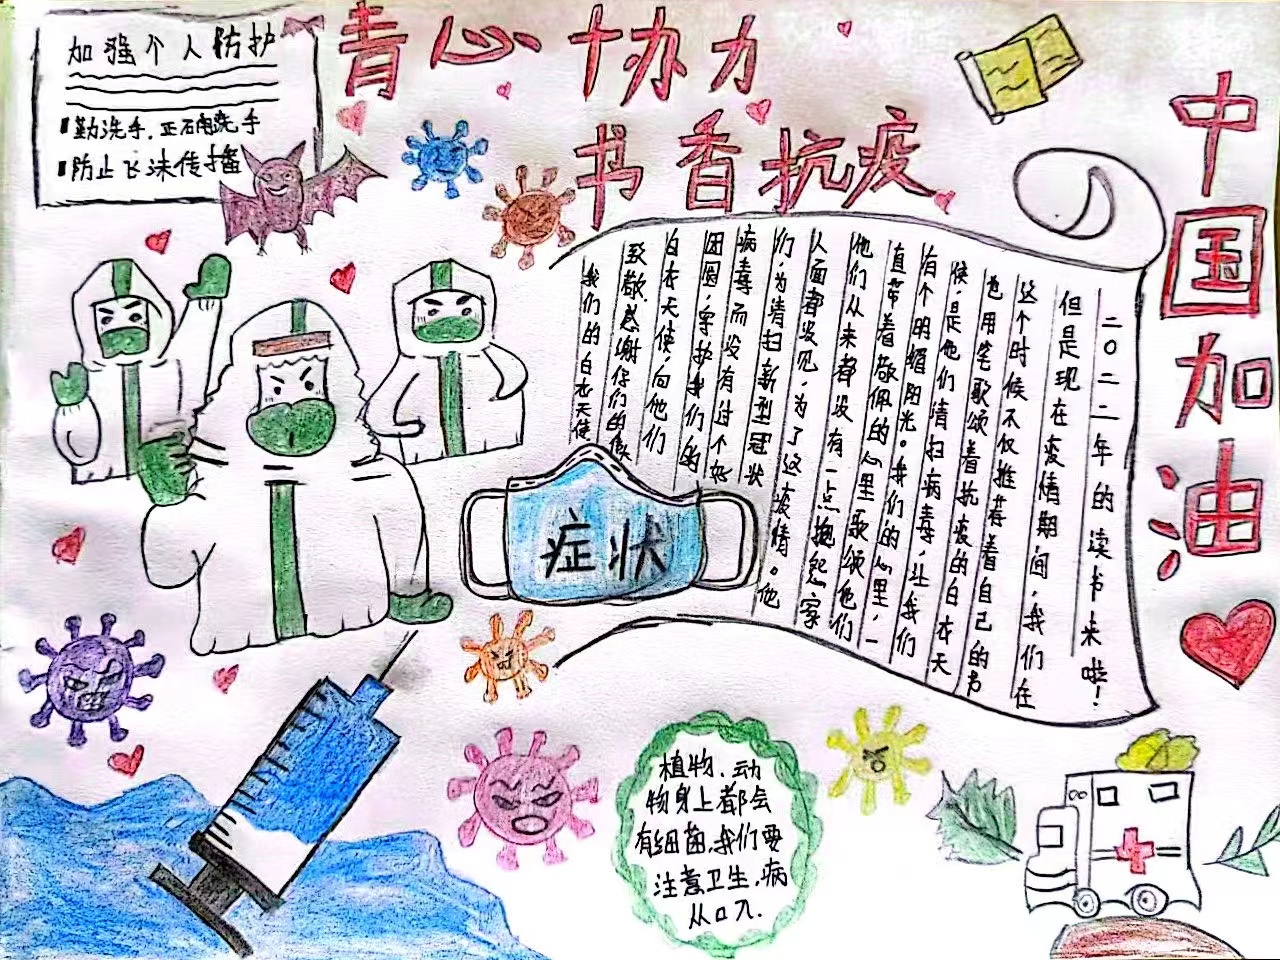 加强个人防护
勤洗手，正确洗手
防止飞沫传播
青心协力
书香抗疫
中国加油
二〇二二年的读书来啦！
但是现在疫情期间，我们在
这个时候不仅推荐着自己的书
也用笔歌颂着抗疫的白衣天
候，是他们清扫病毒，让我们
有个明媚阳光。我们的心里，一
直带着敬佩的心里歌颂他们
他们从来都没有一点抱怨，家
人面都没见，为了这疫情。他
们，为清扫新型冠状
病毒而没有过个好
团圆，守护我们的
白衣天使，向他们
致敬，感谢你们的像
我们的白衣天使
症状
植物、动
物身上都会
有细菌，我们要
注意卫生，病
从口入.